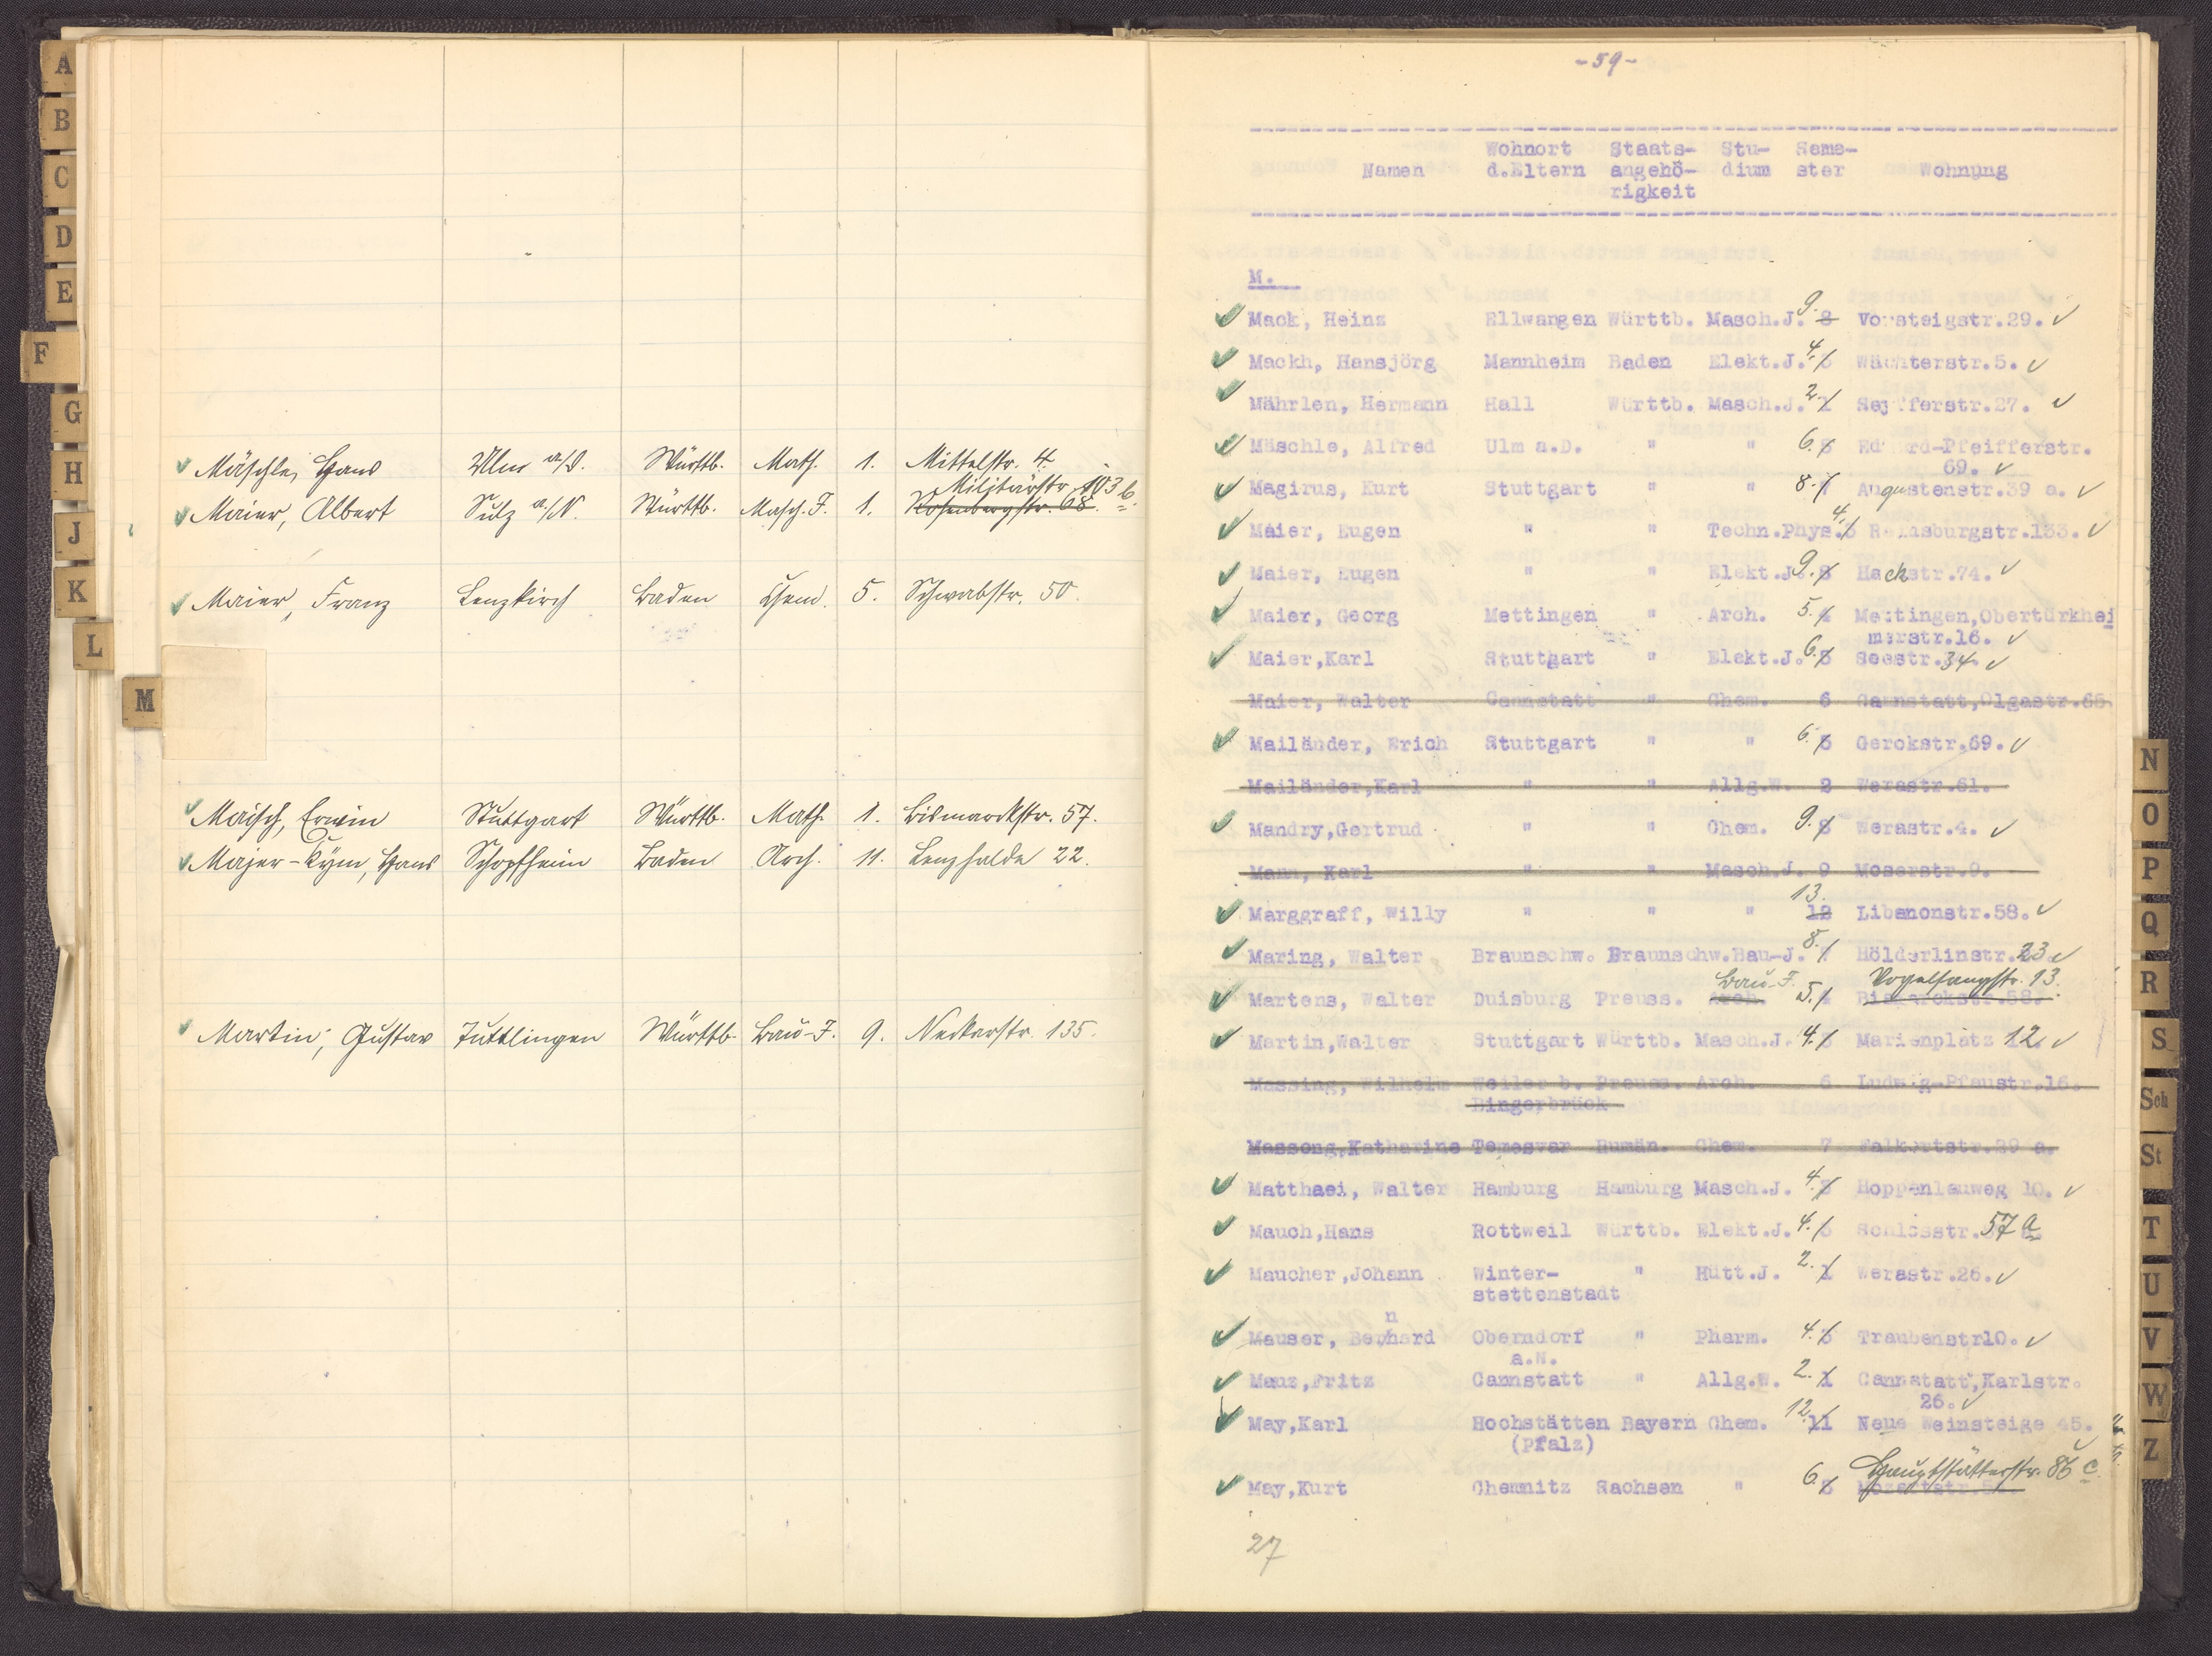 A
B
C
D
E
F
G
H
J
K
L
M
Mäschle, Hans Ulm a/D. Württb. Math. 1. Mittelstr. 4.
Militärstr. 103 b.
Maier, Albert Sulz a/N. Württb. Masch.J. 1. Rosenbergstr. 68.
Maier, Franz Lenzkirch Baden Chem. 5. Schwabstr. 50.
Maisch, Erwin Stuttgart Württb. Math. 1. Bismarckstr. 57.
Majer-Kym, Hans Schopfheim Baden Arch. 11. Lenzhalde 22.
Martin, Gustav Tuttlingen Württb. Bau-J. 9. Neckarstr. 135.
-59-
Wohnort Staats- Stu- Seme-
Namen d.Eltern angehö- dium ster Wohnung
rigkeit
M.
Mack, Heinz Ellwangen Württb. Masch.J. 9. 8 Vorsteigstr.29.
Mackh, Hansjörg Mannheim Baden Elekt.J. 4. 3 Wächterstr.5.
Mährlen, Hermann Hall Württb. Masch.J. 2. 1 Seyfferstr.27.
Mäschle, Alfred Ulm a.D. " " 6. 5 Eduard-Pfeifferstr.
69.
Magirus, Kurt Stuttgart " " 8. 7 Augustenstr.39 a.
Maier, Eugen " " Techn.Phys. 4. 3 Reinsburgstr.133.
Maier, Eugen " " Elekt.J. 9. 8 Hackstr.74.
Maier, Georg Mettingen " Arch. 5. 4 Mettingen,Obertürkhei
merstr.16.
Maier,Karl Stuttgart " Elekt.J. 6. 5 Seestr.34.
Maier, Walter Cannstatt " Chem. 6 Cannstatt,Olgastr.65
Mailänder, Erich Stuttgart " " 6. 5 Gerokstr.69.
Mailänder,Karl " " Allg.W. 2 Werastr.61.
Mandry,Gertrud " " Chem. 9. 8 Werastr.4.
Mann, Karl " " Masch.J. 9 Moserstr.9.
13.
Marggraff, Willy " " " 12 Libanonstr.58.
Maring, Walter Braunschw. Braunschw.Bau-J. 8. 7 Hölderlinstr.23.
Bau-J. Vogelsangstr. 13.
Martens, Walter Duisburg Preuss. Arch. 5. 4 Bismarckstr.58.
Martin,Walter Stuttgart Württb. Masch.J. 4. 3 Marienplatz 12.
Massing, Wilhelm Weiler b. Preuss. Arch. 6 Ludwig-Pfaustr.16.
Bingerbrück
Massong,Katharine Temesvar Rumän. Chem. 7 Falkertstr.29 a.
Matthaei, Walter Hamburg Hamburg Masch.J. 4. 3 Hoppenlauweg 10.
Mauch,Hans Rottweil Württb. Elekt.J. 4. 3 Schlosstr.57 a
Maucher,Johann Winter- " Hütt.J. 2. 1 Werastr.26.
stettenstadt
n
Mauser, Behard Oberndorf " Pharm. 4. 3 Traubenstr10.
a.N.
Mauz,Fritz Cannstatt " Allg.W. 2. 1 Cannstatt,Karlstr.
26.
May,Karl Hochstätten Bayern Chem. 12. 11 Neue Weinsteige 45.
(Pfalz)
Hauptstätterstr. 86 c.
May,Kurt Chemnitz Sachsen " 6. 5
27
N
O
P
Q
R
S
Sch
St
T
U
V
W
Z